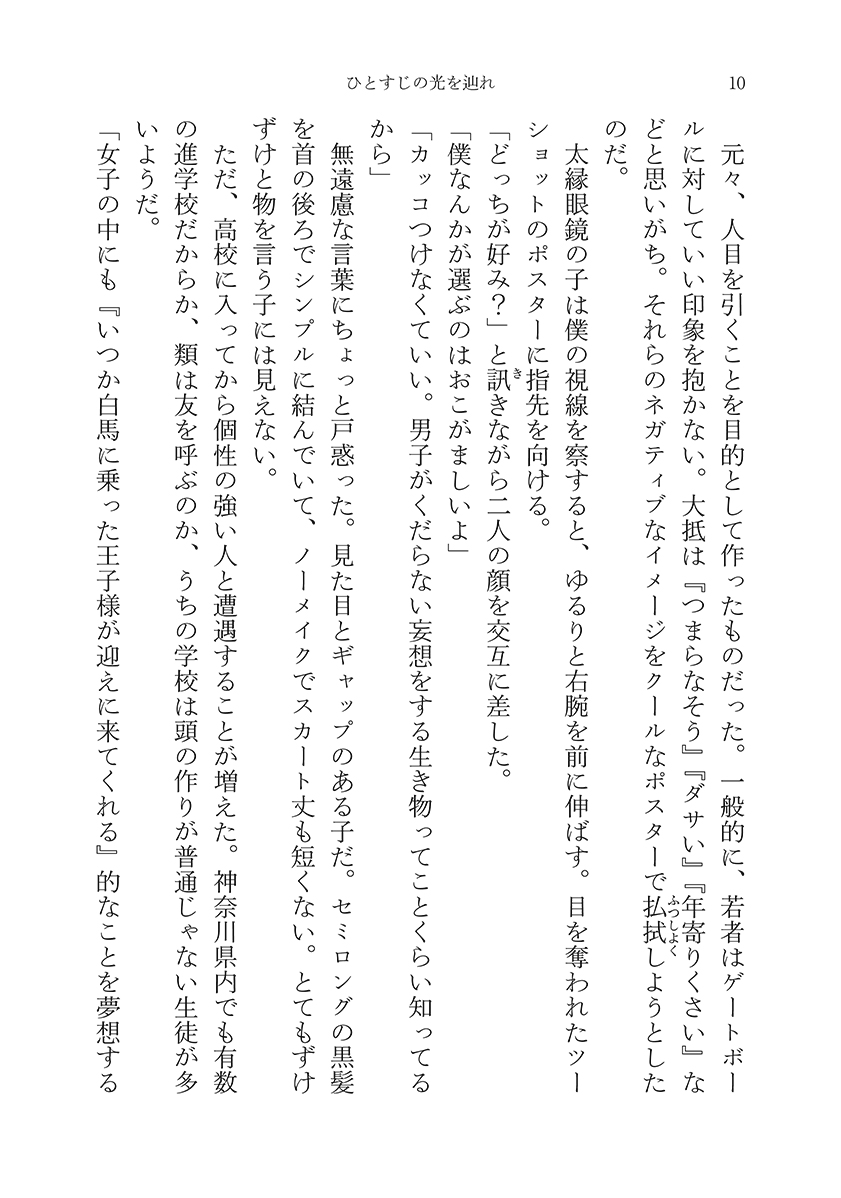 ひとすじの光を辿れ
10
元々、人目を引くことを目的として作ったものだった。一般的に、若者はゲートボー
ルに対していい印象を抱かない。大抵は『つまらなそう』『ダサい』『年寄りくさい』な
どと思いがち。それらのネガティブなイメージをクールなポスターで払拭しようとした
ふつしよく
のだ。
太縁眼鏡の子は僕の視線を察すると、ゆるりと右腕を前に伸ばす。目を奪われたツー
ショットのポスターに指先を向ける。
「どっちが好み？」と訊きながら二人の顔を交互に差した。
き
「僕なんかが選ぶのはおこがましいよ」
「カッコつけなくていい。男子がくだらない妄想をする生き物ってことくらい知ってる
から」
無遠慮な言葉にちょっと戸惑った。見た目とギャップのある子だ。セミロングの黒髪
を首の後ろでシンプルに結んでいて、ノーメイクでスカート丈も短くない。とてもずけ
ずけと物を言う子には見えない。
ただ、高校に入ってから個性の強い人と遭遇することが増えた。神奈川県内でも有数
の進学校だからか、類は友を呼ぶのか、うちの学校は頭の作りが普通じゃない生徒が多
いようだ。
「女子の中にも『いつか白馬に乗った王子様が迎えに来てくれる』的なことを夢想する